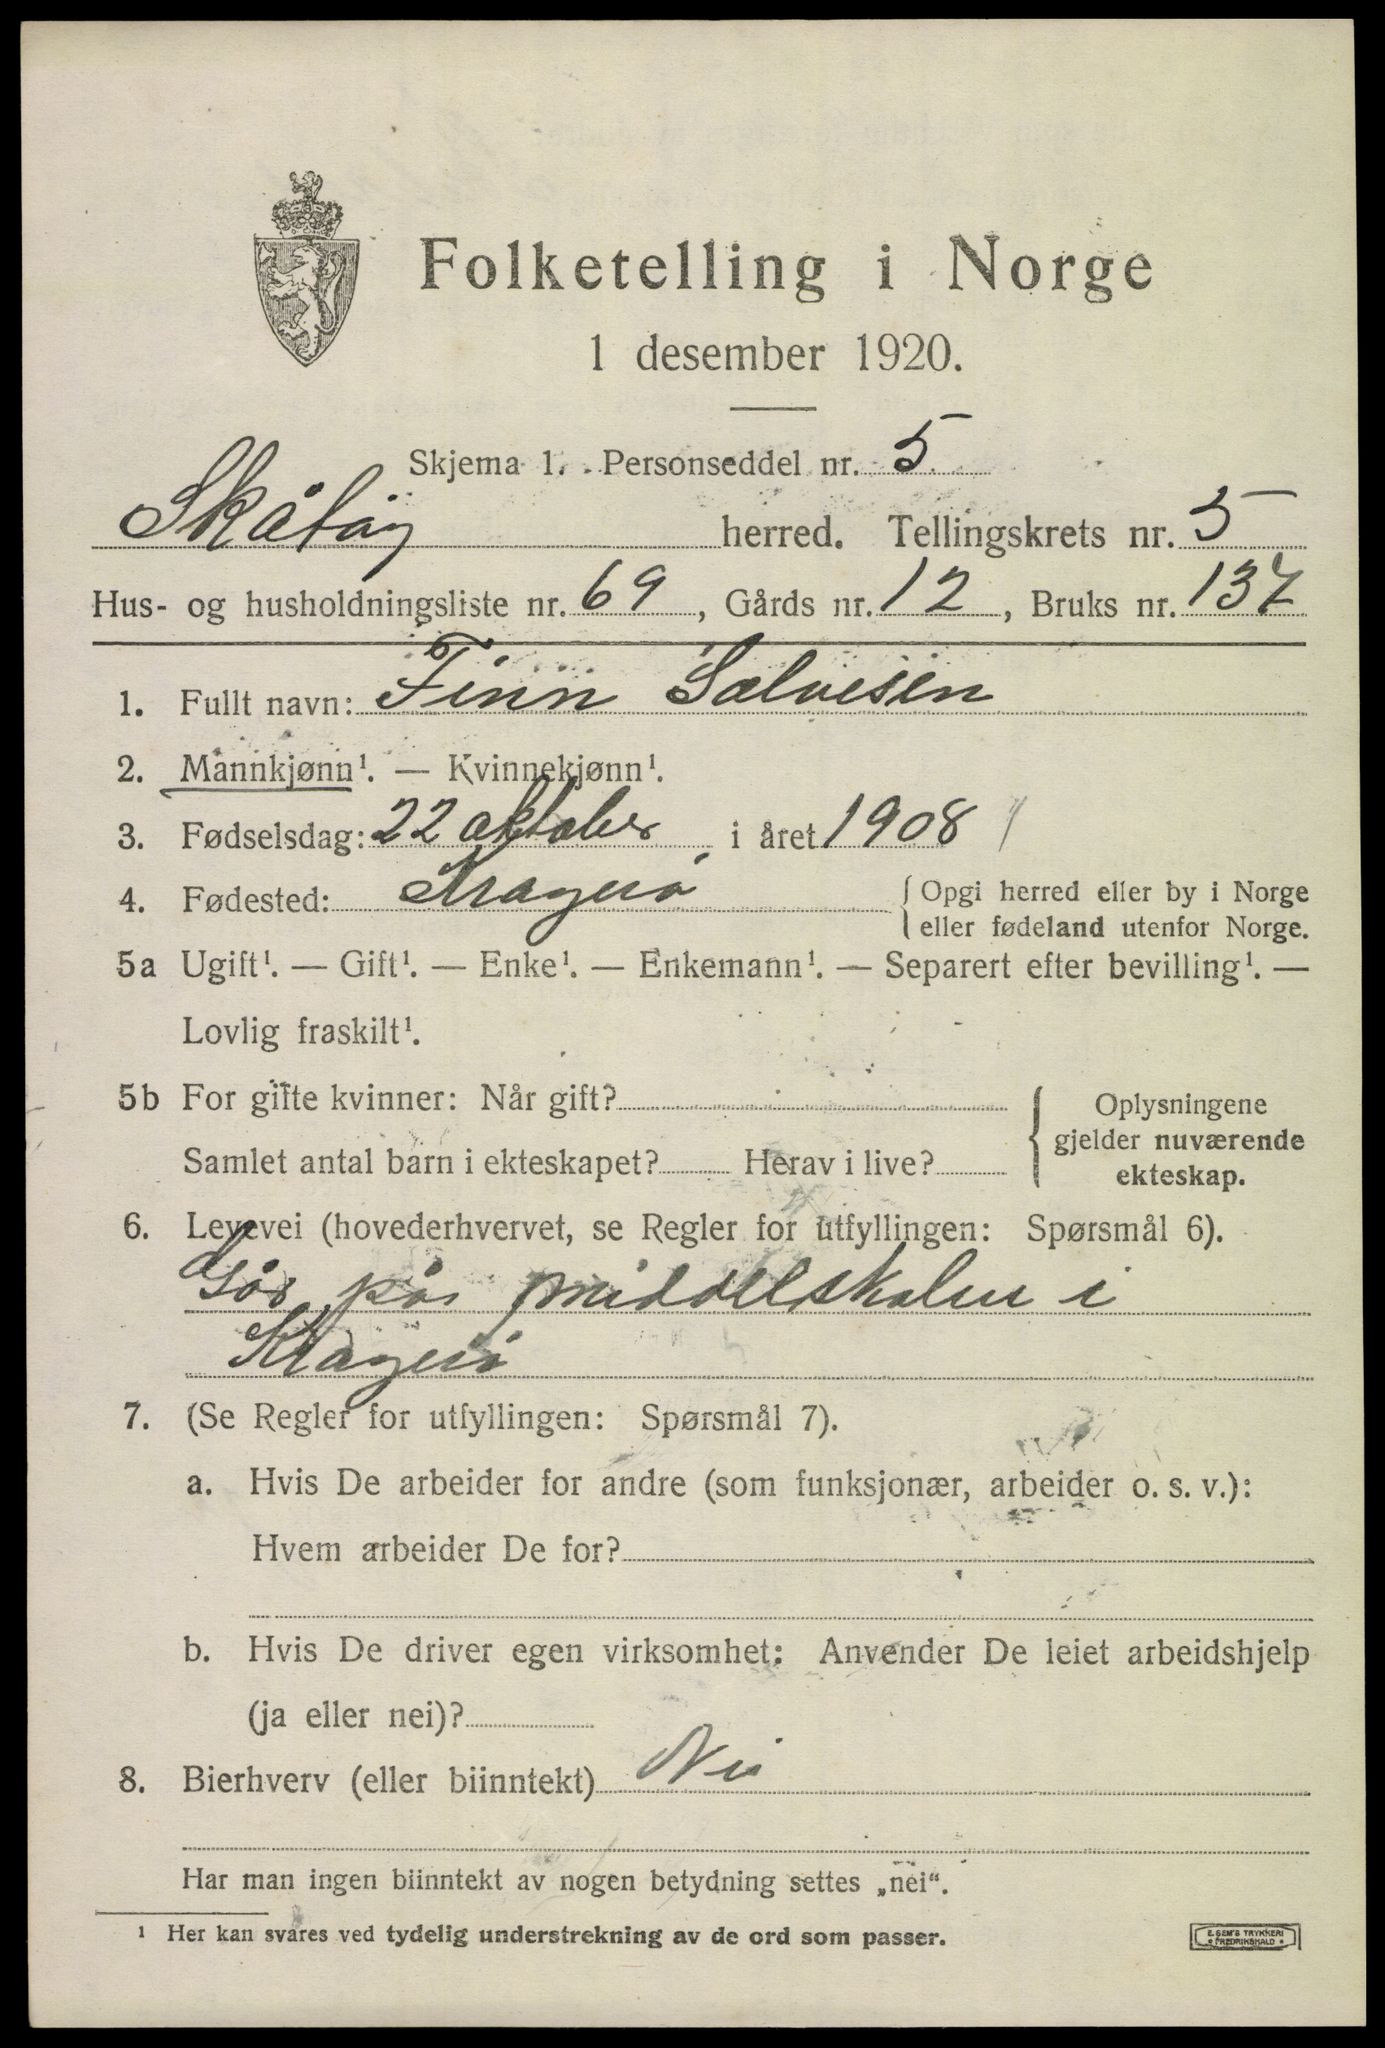 Folketelling i Norge
1 desember 1920.
Skjema 1. Personseddel nr. 5
Skåtöy herred. Tellingskrets nr. 5
Hus- og husholdningsliste nr. 69, Gårds nr. 12, Bruks nr. 137
1. Fullt navn: Finn Salvesen
2. Mannkjønn¹. — Kvinnekjønn¹.
3. Fødselsdag: 22 oktober i året 1908
4. Fødested: Kragerö { Opgi herred eller by i Norge
eller fødeland utenfor Norge.
5a Ugift¹. — Gift¹. — Enke¹. — Enkemann¹. — Separert efter bevilling¹. —
Lovlig fraskilt¹.
5b For gifte kvinner: Når gift? { Oplysningene
gjelder nuværende
Samlet antal barn i ekteskapet? Herav i live? ekteskap.
6. Levevei (hovederhvervet, se Regler for utfyllingen: Spørsmål 6).
Går på middelskolen i
Kragerö
7. (Se Regler for utfyllingen: Spørsmål 7).
a. Hvis De arbeider for andre (som funksjonær, arbeider o. s. v.):
Hvem arbeider De for?
b. Hvis De driver egen virksomhet: Anvender De leiet arbeidshjelp
(ja eller nei)?
8. Bierhverv (eller biinntekt) Nei
Har man ingen biinntekt av nogen betydning settes „nei“.
¹ Her kan svares ved tydelig understrekning av de ord som passer.
E. SEM'S TRYKKERI
FREDRIKSHALD